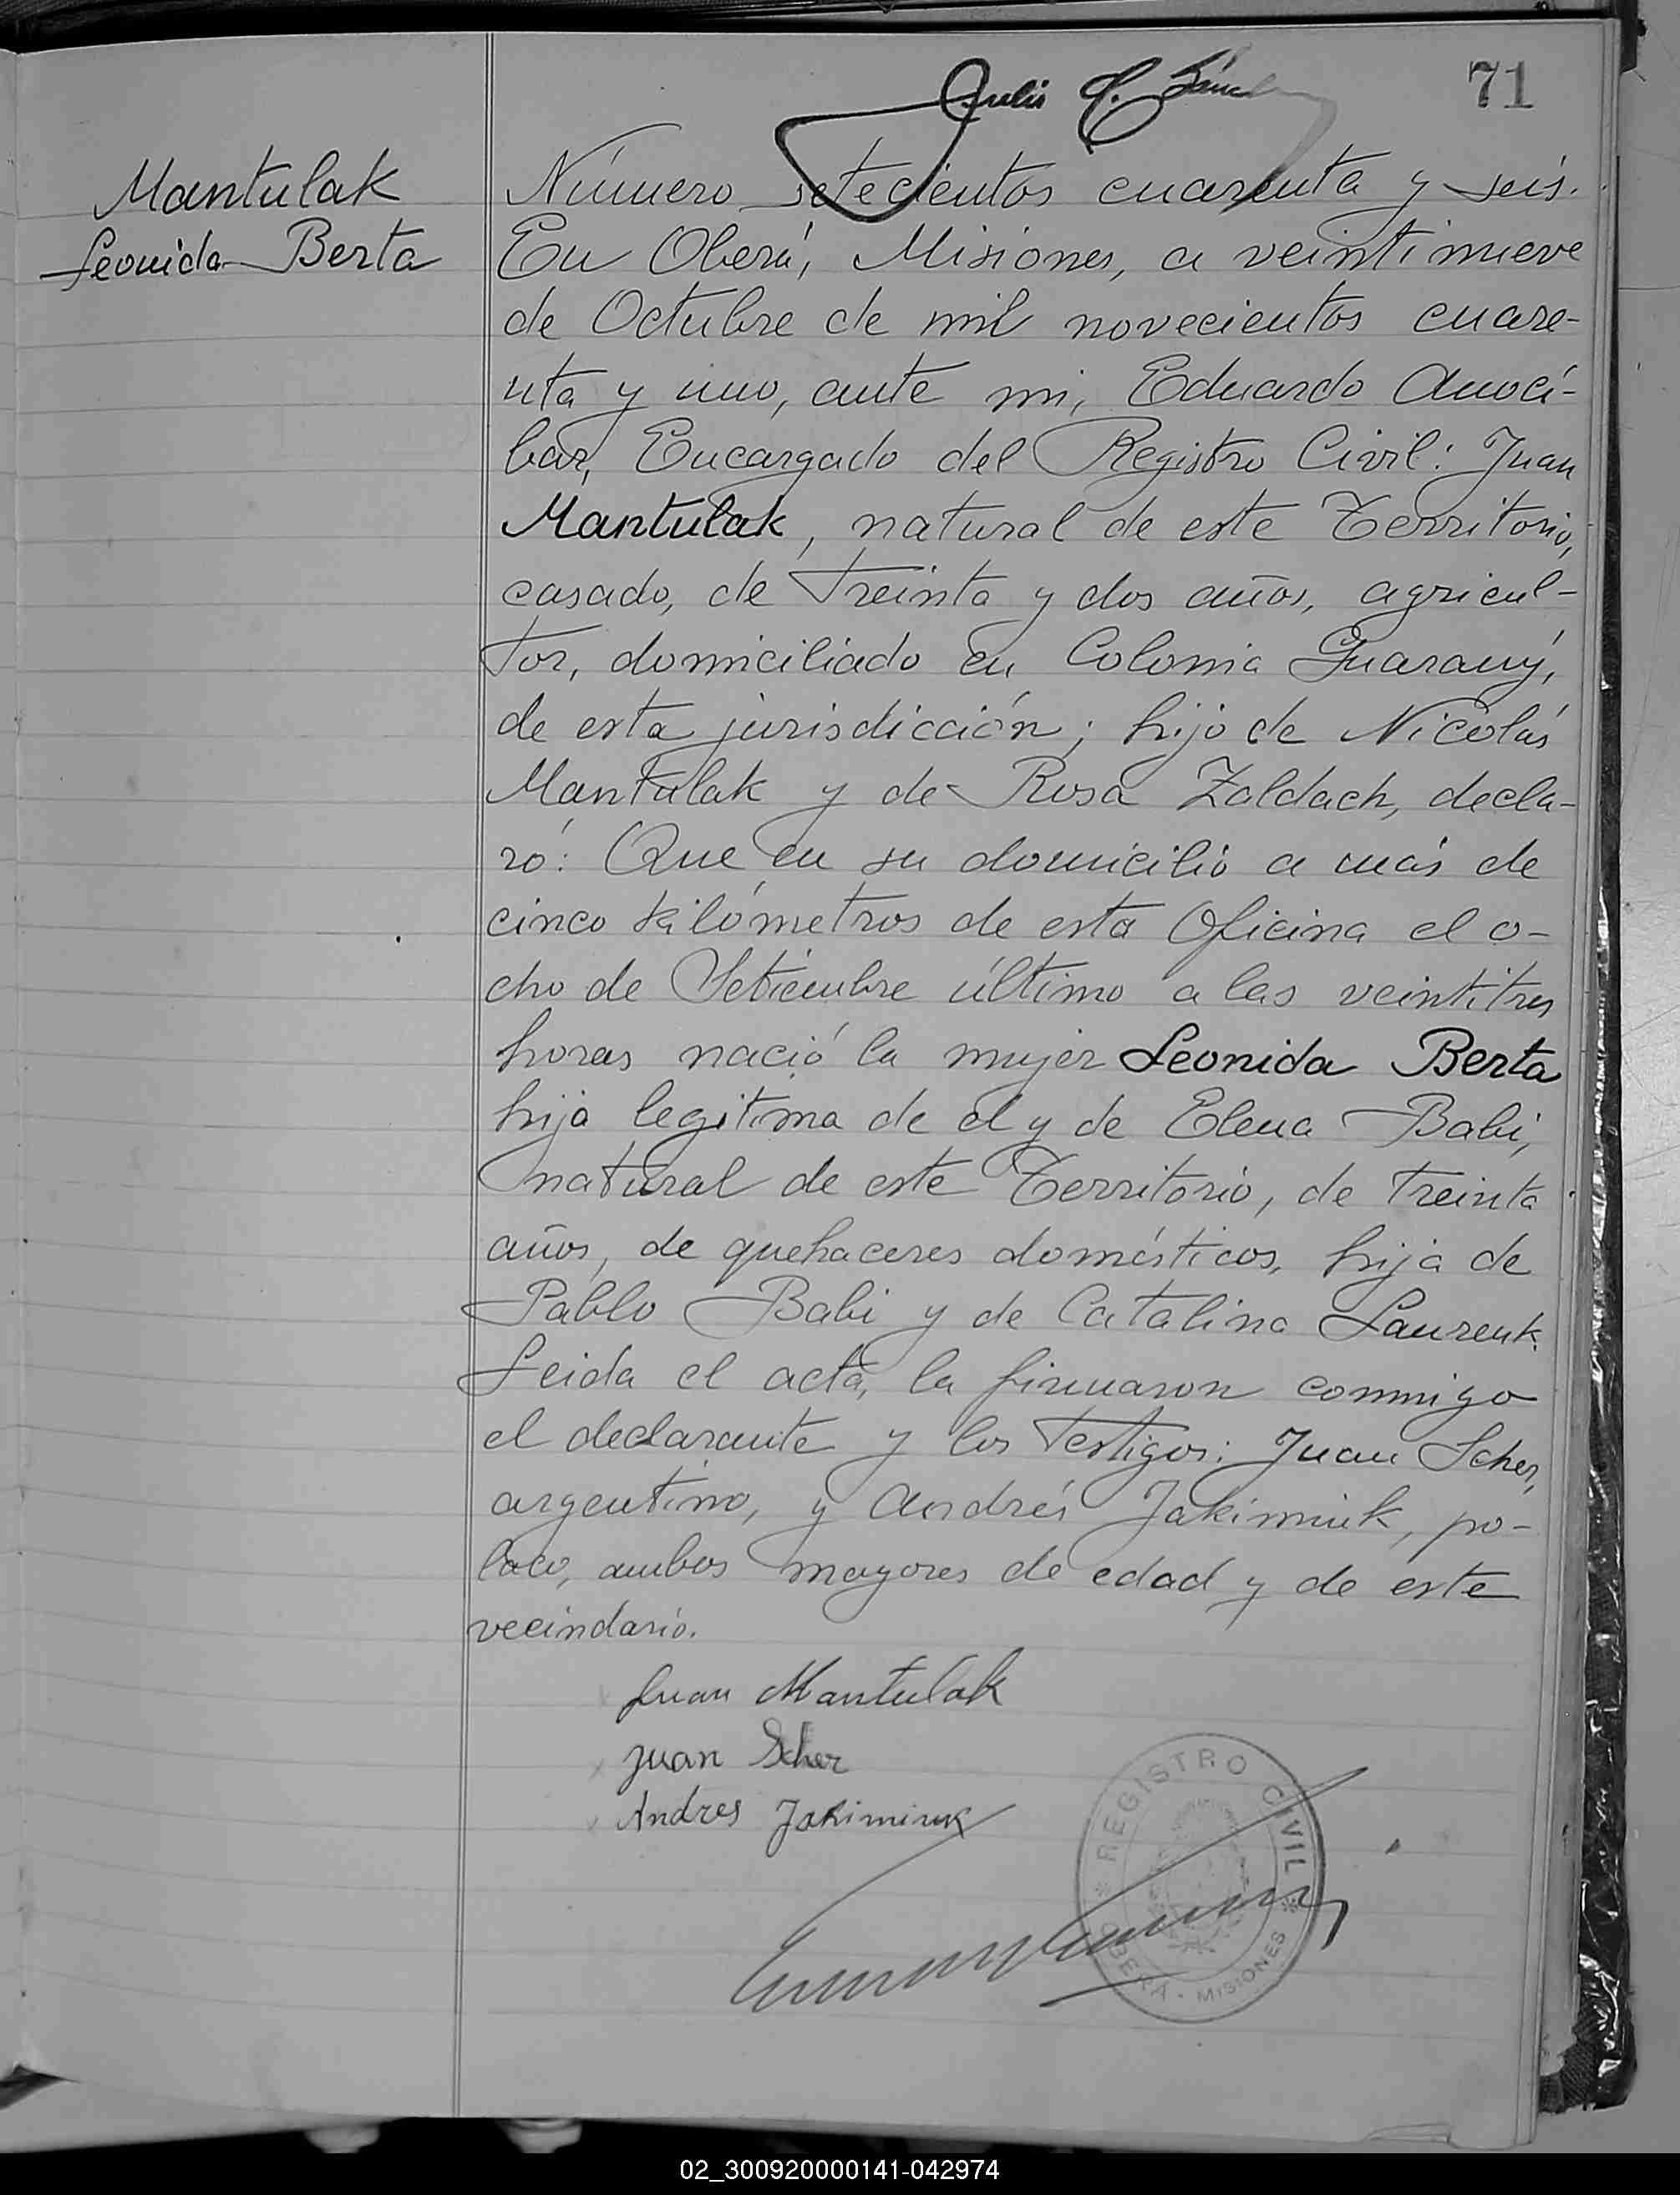 Julio
71
Mantulak
Leonida Berta
Número setecientos cuarenta y seis.
En Oberá, Misiones, a veintinueve
de Octubre de mil novecientos cuare-
nta y uno, ante mi, Eduardo Anocí-
bar, Encargado del Registro Civil: Juan
Mantulak, natural de este Territorio,
casado, de treinta y dos años, agricul-
tor, domiciliado en Colonia Guaraný,
de esta jurisdicción; hijo de Nicolás
Mantulak y de Rosa Zaldach, decla-
ró: Que en su domicilio a más de
cinco kilómetros de esta Oficina el o-
cho de Setiembre último a las veintitres
horas nació la mujer Leonida Berta
hija legitima de el y de Elena Babi,
natural de este Territorio, de treinta
años, de quehaceres domésticos, hija de
Pablo Babi y de Catalina Laurenk.
Leida el acta, la firmaron conmigo
el declarante y los testigos: Juan Scher,
argentino, y Andrés Jakimiuk, po-
laco, ambos mayores de edad y de este
vecindario.
Juan Mantulak
Juan Scher
Andres Jakimiuk
REGISTRO CIVIL
OBERÁ - MISIONES
02_300920000141-042974